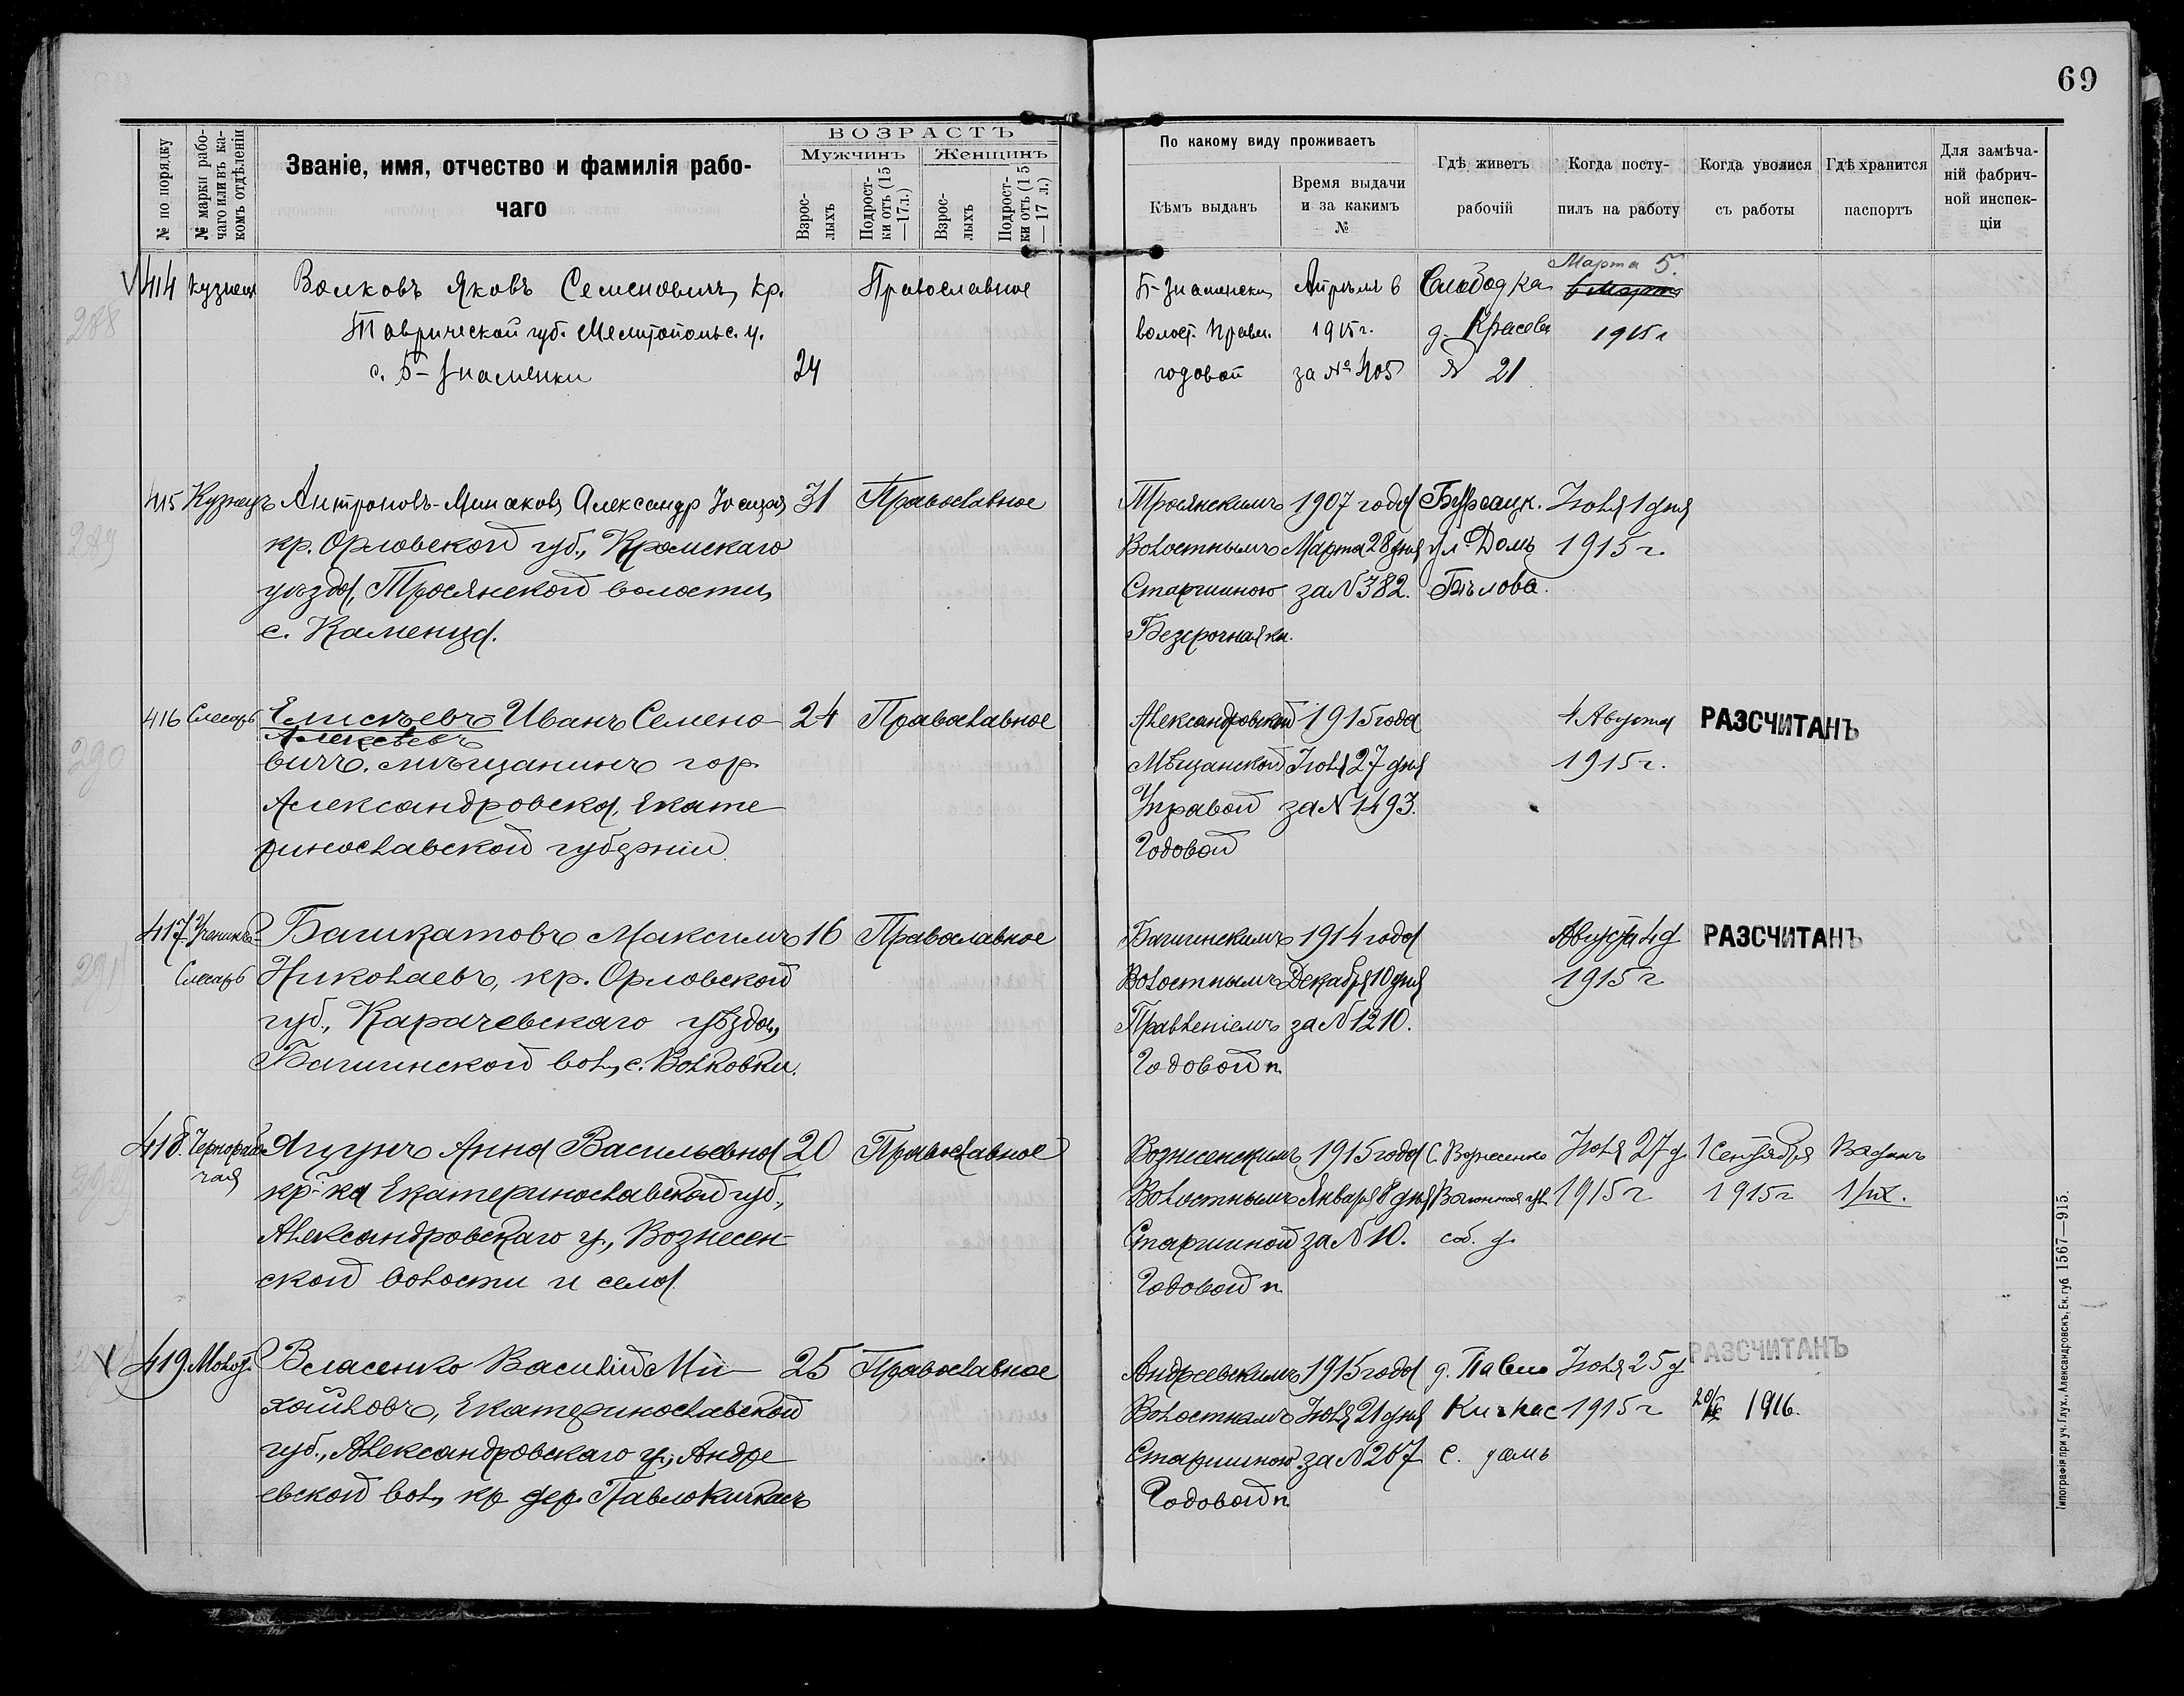 69
№ по порядку
№ марки рабо-
чаго или въ ка-
комъ отдѣленіи
Званіе, имя, отчество и фамилія рабо-
чаго
ВОЗРАСТЪ
Мужчинъ
Женщинъ
Взрос-
лыхъ
Подрост-
ки отъ (15
—17 л.)
Взрос-
лыхъ
Подрост-
ки отъ (15
—17 л.)
По какому виду проживаетъ
Кѣмъ выданъ
Время выдачи
и за какимъ
№
Гдѣ живетъ
рабочій
Когда посту-
пилъ на работу
Когда уволися
съ работы
Гдѣ хранится
паспортъ
Для замѣча-
ній фабрич-
ной инспек-
ціи
288
414 кузнец Волковъ Яковъ Семеновичъ, кр.
Таврической губ. Мелитопольс. у.
с. Б-Знаменки
24
Православное
Б-Знаменски
волост. Правл.
годовой
Апрѣля 6
1915 г.
за № 405
Слободка
д. Красева
№ 21
Марта 5.
6 Марта
1915 г
289
415 Кузнецъ Антроповъ-Минаковъ Александр
кр. Орловской губ., Кромскаго
уѣзда, Тросянской волости,
с. Каменца.
31
Православное
Тросянскимъ
Волостнымъ
Старшиною
Безсрочная кн.
1907 года
Марта 28 дня
за № 382.
Бурсацк.
ул. Домъ
Бѣлова.
Іюля 1 дня
1915 г.
290
416 Слесарь Елисѣевъ Иванъ Семено-
Алексѣевъ
вичъ. мѣщанинъ гор.
Александровска, Екате
ринославской губерніи
24
Православное
Александровской
Мѣщанской
Управой
Годовой
1915 года
Іюля 27 дня
за № 1493.
1 Августа
1915 г.
РАЗСЧИТАНЪ
291
417. Ученикъ-
Слесарь
Башкатовъ Максимъ
Николаевъ, кр. Орловской
губ., Карачевскаго уѣзда,
Башинской вол, с. Волковки.
16
Православное
Башинскимъ
Волостнымъ
Правленіемъ
Годовой п.
1914 года
Декабря 10 дня
за № 1210.
Августа 4 д
1915 г
РАЗСЧИТАНЪ
418. Чернорабо-
чая
Яцунъ Анна Васильевна
кр-ка Екатеринославской губ.,
Александровскаго у., Вознесен-
ской волости и села.
20
Православное
Вознесенскимъ
Волостнымъ
Старшиной
Годовой п.
1915 года
Января 8 дня
за № 10.
С. Вознесенка
соб. д.
Іюля 27 д.
1915 г
1 Сентября
1915 г
Выданъ
1/IX.
419. Молот. Власенко Василій Ми-
хайловъ, Екатеринославской
губ., Александровскаго у., Андре
евской вол, кр дер. Павлокичкасъ
25
Православное
Андреевскимъ
Волостнымъ
Старшиною
Годовой п.
1915 года
Іюля 21 дня
за № 267
д. Павло
Кичкас
с. домъ
Іюля 25 д
1915 г
РАЗСЧИТАНЪ
1916.
Типографія при уч. Глух., Александровскъ, Ек. губ. 1567—915.